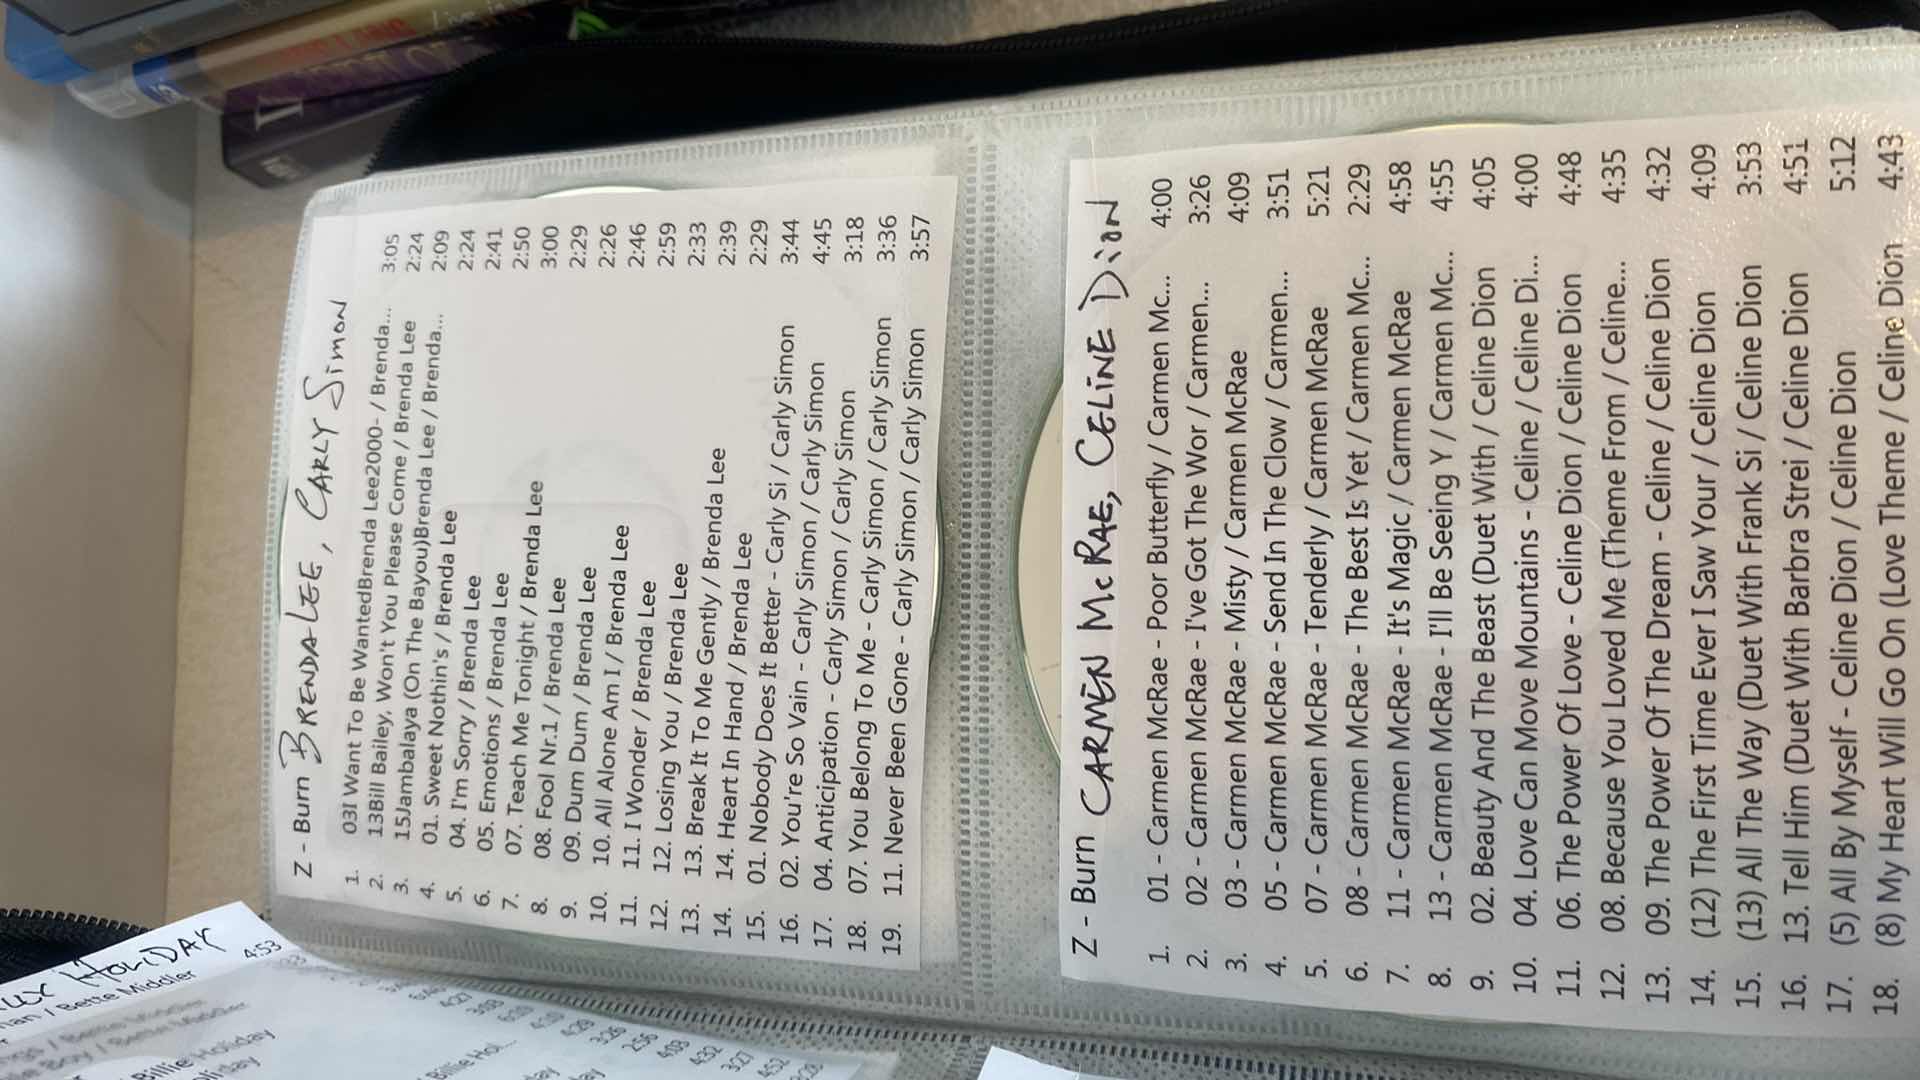 Z - Burn BRENDA LEE, CARLY SIMON
1. 03I Want To Be WantedBrenda Lee2000- / Brenda... 3:05
2. 13Bill Bailey, Won't You Please Come / Brenda Lee 2:24
3. 15Jambalaya (On The Bayou)Brenda Lee / Brenda... 2:09
4. 01. Sweet Nothin's / Brenda Lee 2:24
5. 04. I'm Sorry / Brenda Lee 2:41
6. 05. Emotions / Brenda Lee 2:50
7. 07. Teach Me Tonight / Brenda Lee 3:00
8. 08. Fool Nr.1 / Brenda Lee 2:29
9. 09. Dum Dum / Brenda Lee 2:26
10. 10. All Alone Am I / Brenda Lee 2:46
11. 11. I Wonder / Brenda Lee 2:59
12. 12. Losing You / Brenda Lee 2:33
13. 13. Break It To Me Gently / Brenda Lee 2:39
14. 14. Heart In Hand / Brenda Lee 2:29
15. 01. Nobody Does It Better - Carly Si / Carly Simon 3:44
16. 02. You're So Vain - Carly Simon / Carly Simon 4:45
17. 04. Anticipation - Carly Simon / Carly Simon 3:18
18. 07. You Belong To Me - Carly Simon / Carly Simon 3:36
19. 11. Never Been Gone - Carly Simon / Carly Simon 3:57
Z - Burn CARMEN McRAE, CELINE DION
1. 01 - Carmen McRae - Poor Butterfly / Carmen Mc... 4:00
2. 02 - Carmen McRae - I've Got The Wor / Carmen... 3:26
3. 03 - Carmen McRae - Misty / Carmen McRae 4:09
4. 05 - Carmen McRae - Send In The Clow / Carmen... 3:51
5. 07 - Carmen McRae - Tenderly / Carmen McRae 5:21
6. 08 - Carmen McRae - The Best Is Yet / Carmen Mc... 2:29
7. 11 - Carmen McRae - It's Magic / Carmen McRae 4:58
8. 13 - Carmen McRae - I'll Be Seeing Y / Carmen Mc... 4:55
9. 02. Beauty And The Beast (Duet With / Celine Dion 4:05
10. 04. Love Can Move Mountains - Celine / Celine Di... 4:00
11. 06. The Power Of Love - Celine Dion / Celine Dion 4:48
12. 08. Because You Loved Me (Theme From / Celine... 4:35
13. 09. The Power Of The Dream - Celine / Celine Dion 4:32
14. (12) The First Time Ever I Saw Your / Celine Dion 4:09
15. (13) All The Way (Duet With Frank Si / Celine Dion 3:53
16. 13. Tell Him (Duet With Barbra Strei / Celine Dion 4:51
17. (5) All By Myself - Celine Dion / Celine Dion 5:12
18. (8) My Heart Will Go On (Love Theme / Celine Dion 4:43
HOLIDAY
/ Bette Middler 4:53
Billie Holiday